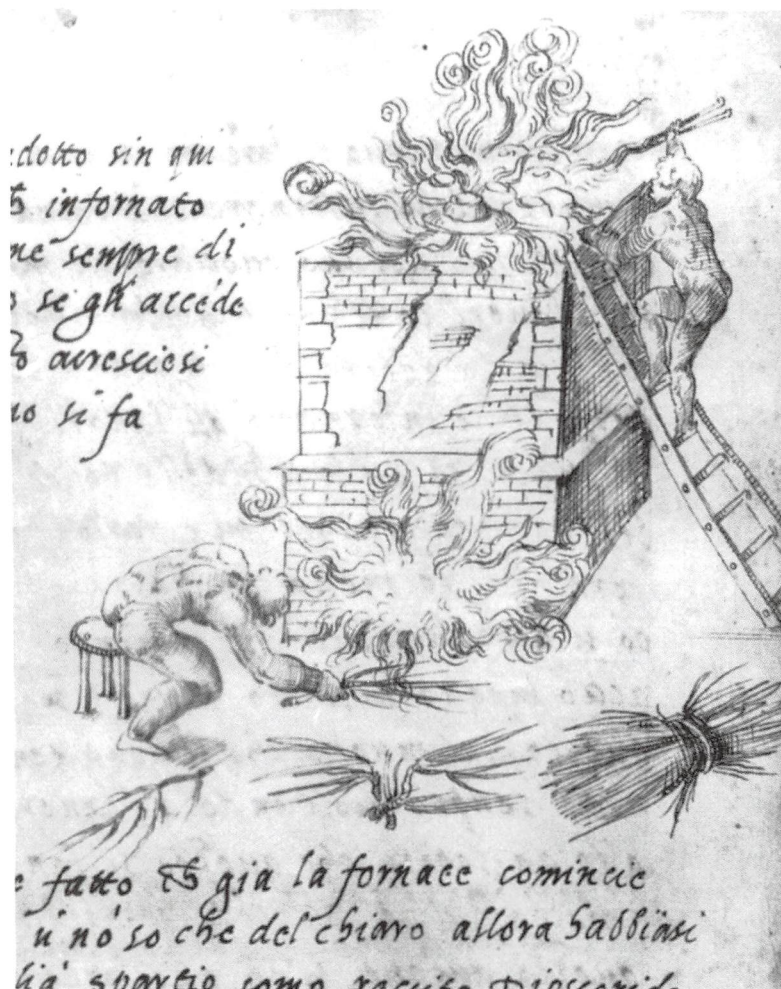 dotto sin qui
& infornato
ne sempre di
se gli accède
avresciesi
no si fa
e fatto & gia la fornace comincie
u nò so che del chiaro allora habbiasi
sparto como